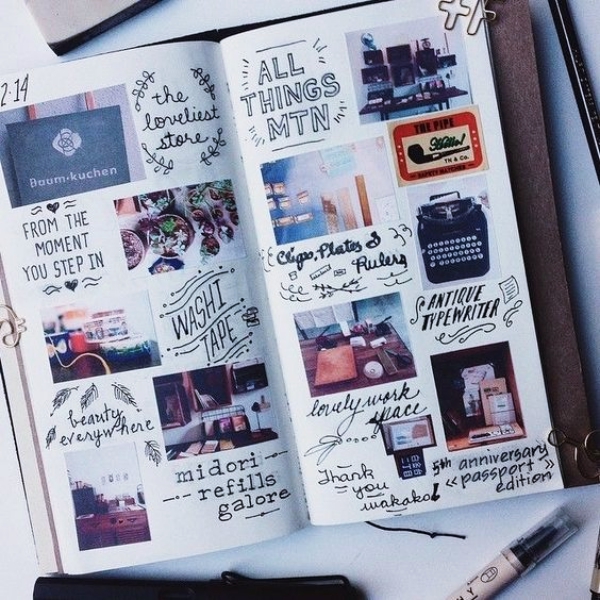 2.14
the
loveliest
store
Baum-kuchen
FROM THE
MOMENT
YOU STEP IN
WASHI
TAPE
beauty
everywhere
midori
refills
galore
ALL
THINGS
MTN
THE PIPE
Hello!
TH & Co.
SAFETY MATCHES
Clips, Plates &
Rulers
ANTIQUE
TYPEWRITER
lovely work
space
Thank
you
wakako!
5th anniversary
«passport»
edition